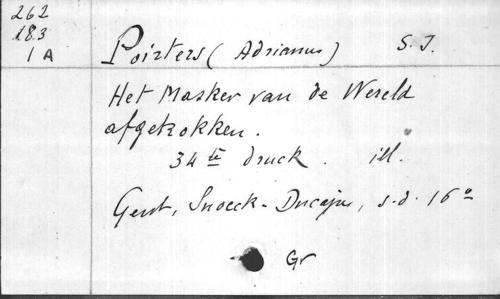 262
183
1 A
Poirters (Adrianus) S. J.
Het Masker van de Wereld
afgetrokken.
34te druck. ill.
Gent, Snoeck-Ducaju, s.d. 16°
Gr